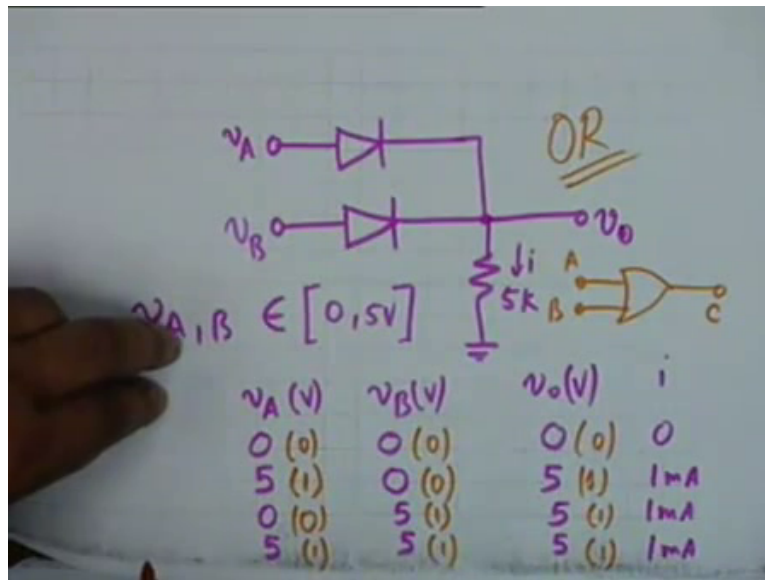 OR
v_A
v_B
v_o
↓i
5K
A
B
C
v_A,B ∈ [0,5V]
v_A (V) v_B (V) v_o (V) i
0 (0) 0 (0) 0 (0) 0
5 (1) 0 (0) 5 (1) 1mA
0 (0) 5 (1) 5 (1) 1mA
5 (1) 5 (1) 5 (1) 1mA